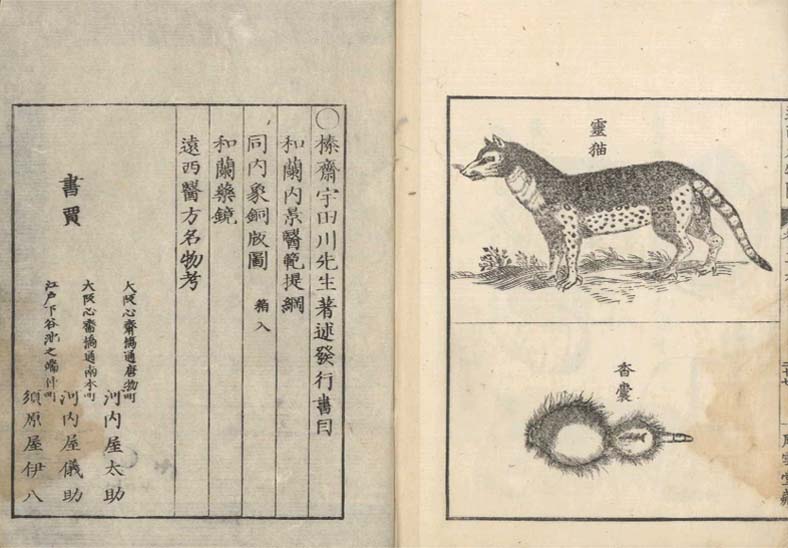 靈猫
香嚢
〇榛齋宇田川先生著述發行書目
和蘭内景醫範提綱
同内象銅版圖 箱入
和蘭藥鏡
遠西醫方名物考
書賈
大阪心齋橋通唐物町 河内屋太助
大阪心齋橋通南本町 河内屋儀助
江戸下谷池之端仲町 須原屋伊八